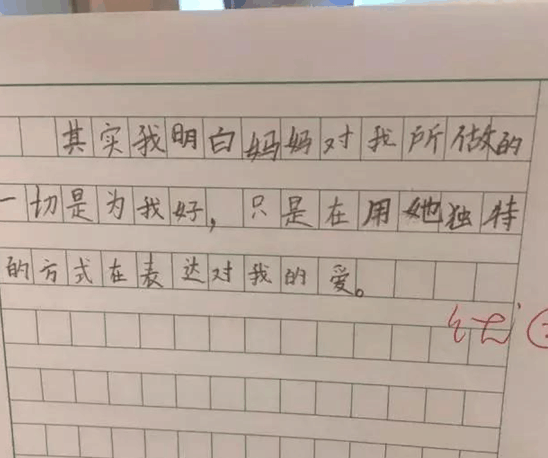 其实我明白妈妈对我所做的
一切是为我好，只是在用她独特
的方式在表达对我的爱。